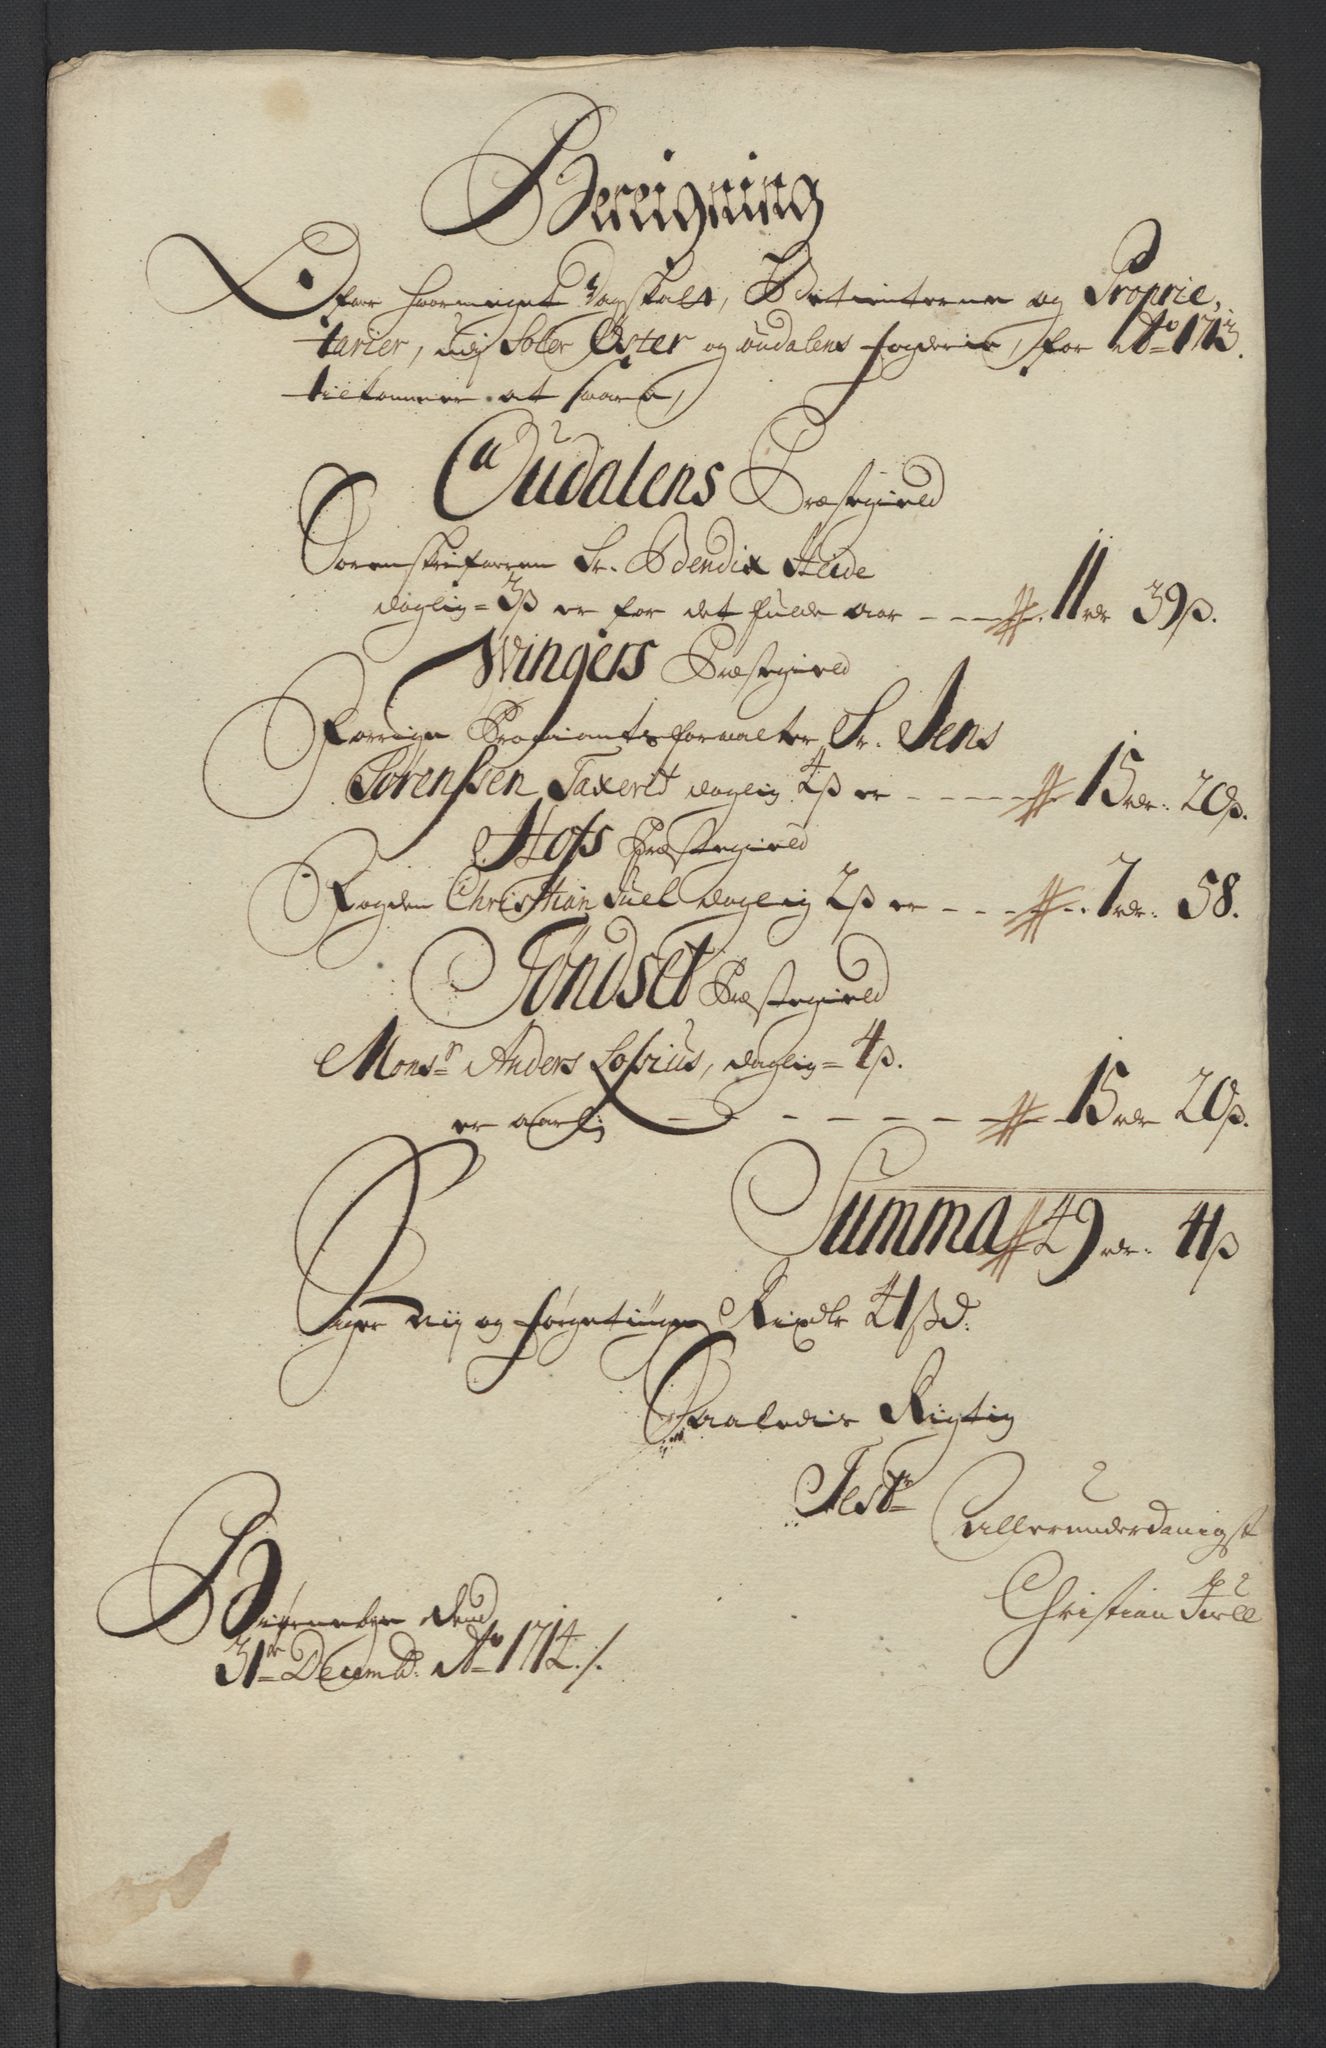 Bereigning
Ofver hvormeget Dagskatt, Betienterne og Proprie,
tarier, udj Soløer Øster og oudalens fogderie, for Ao 1713.
tilkommer at svare,
Oudalens Præstegield
Sorenskriferen Sr. Bendix Heide
daglig = 3 ß er for det fulde aar - - - 11 rdr 39 ß.
Wingers Præstegield
Forrige Proviantsforvalter Sr. Jens
Sørenssen Taxerit daglig 4 ß er - - - - - 15 rdr: 20 ß.
Hofs Præstegield
Fogden Christian Juel daglig 2 ß er - - - - 7 rdr: 58.
Tøndset Præstegield
Monsr Anders Losius, daglig = 4 ß.
er aarl: - - - - - - - 15 rdr 20 ß.
Summa 49 rdr: 41 ß
Siger nij og førgetiuge Rixdlr 41 ß d:
Saaledis Rigtig
Test
allerunderdanigst
Christian Juell
Biørneby Dend
31te Decembr: Ao 1714 ./.